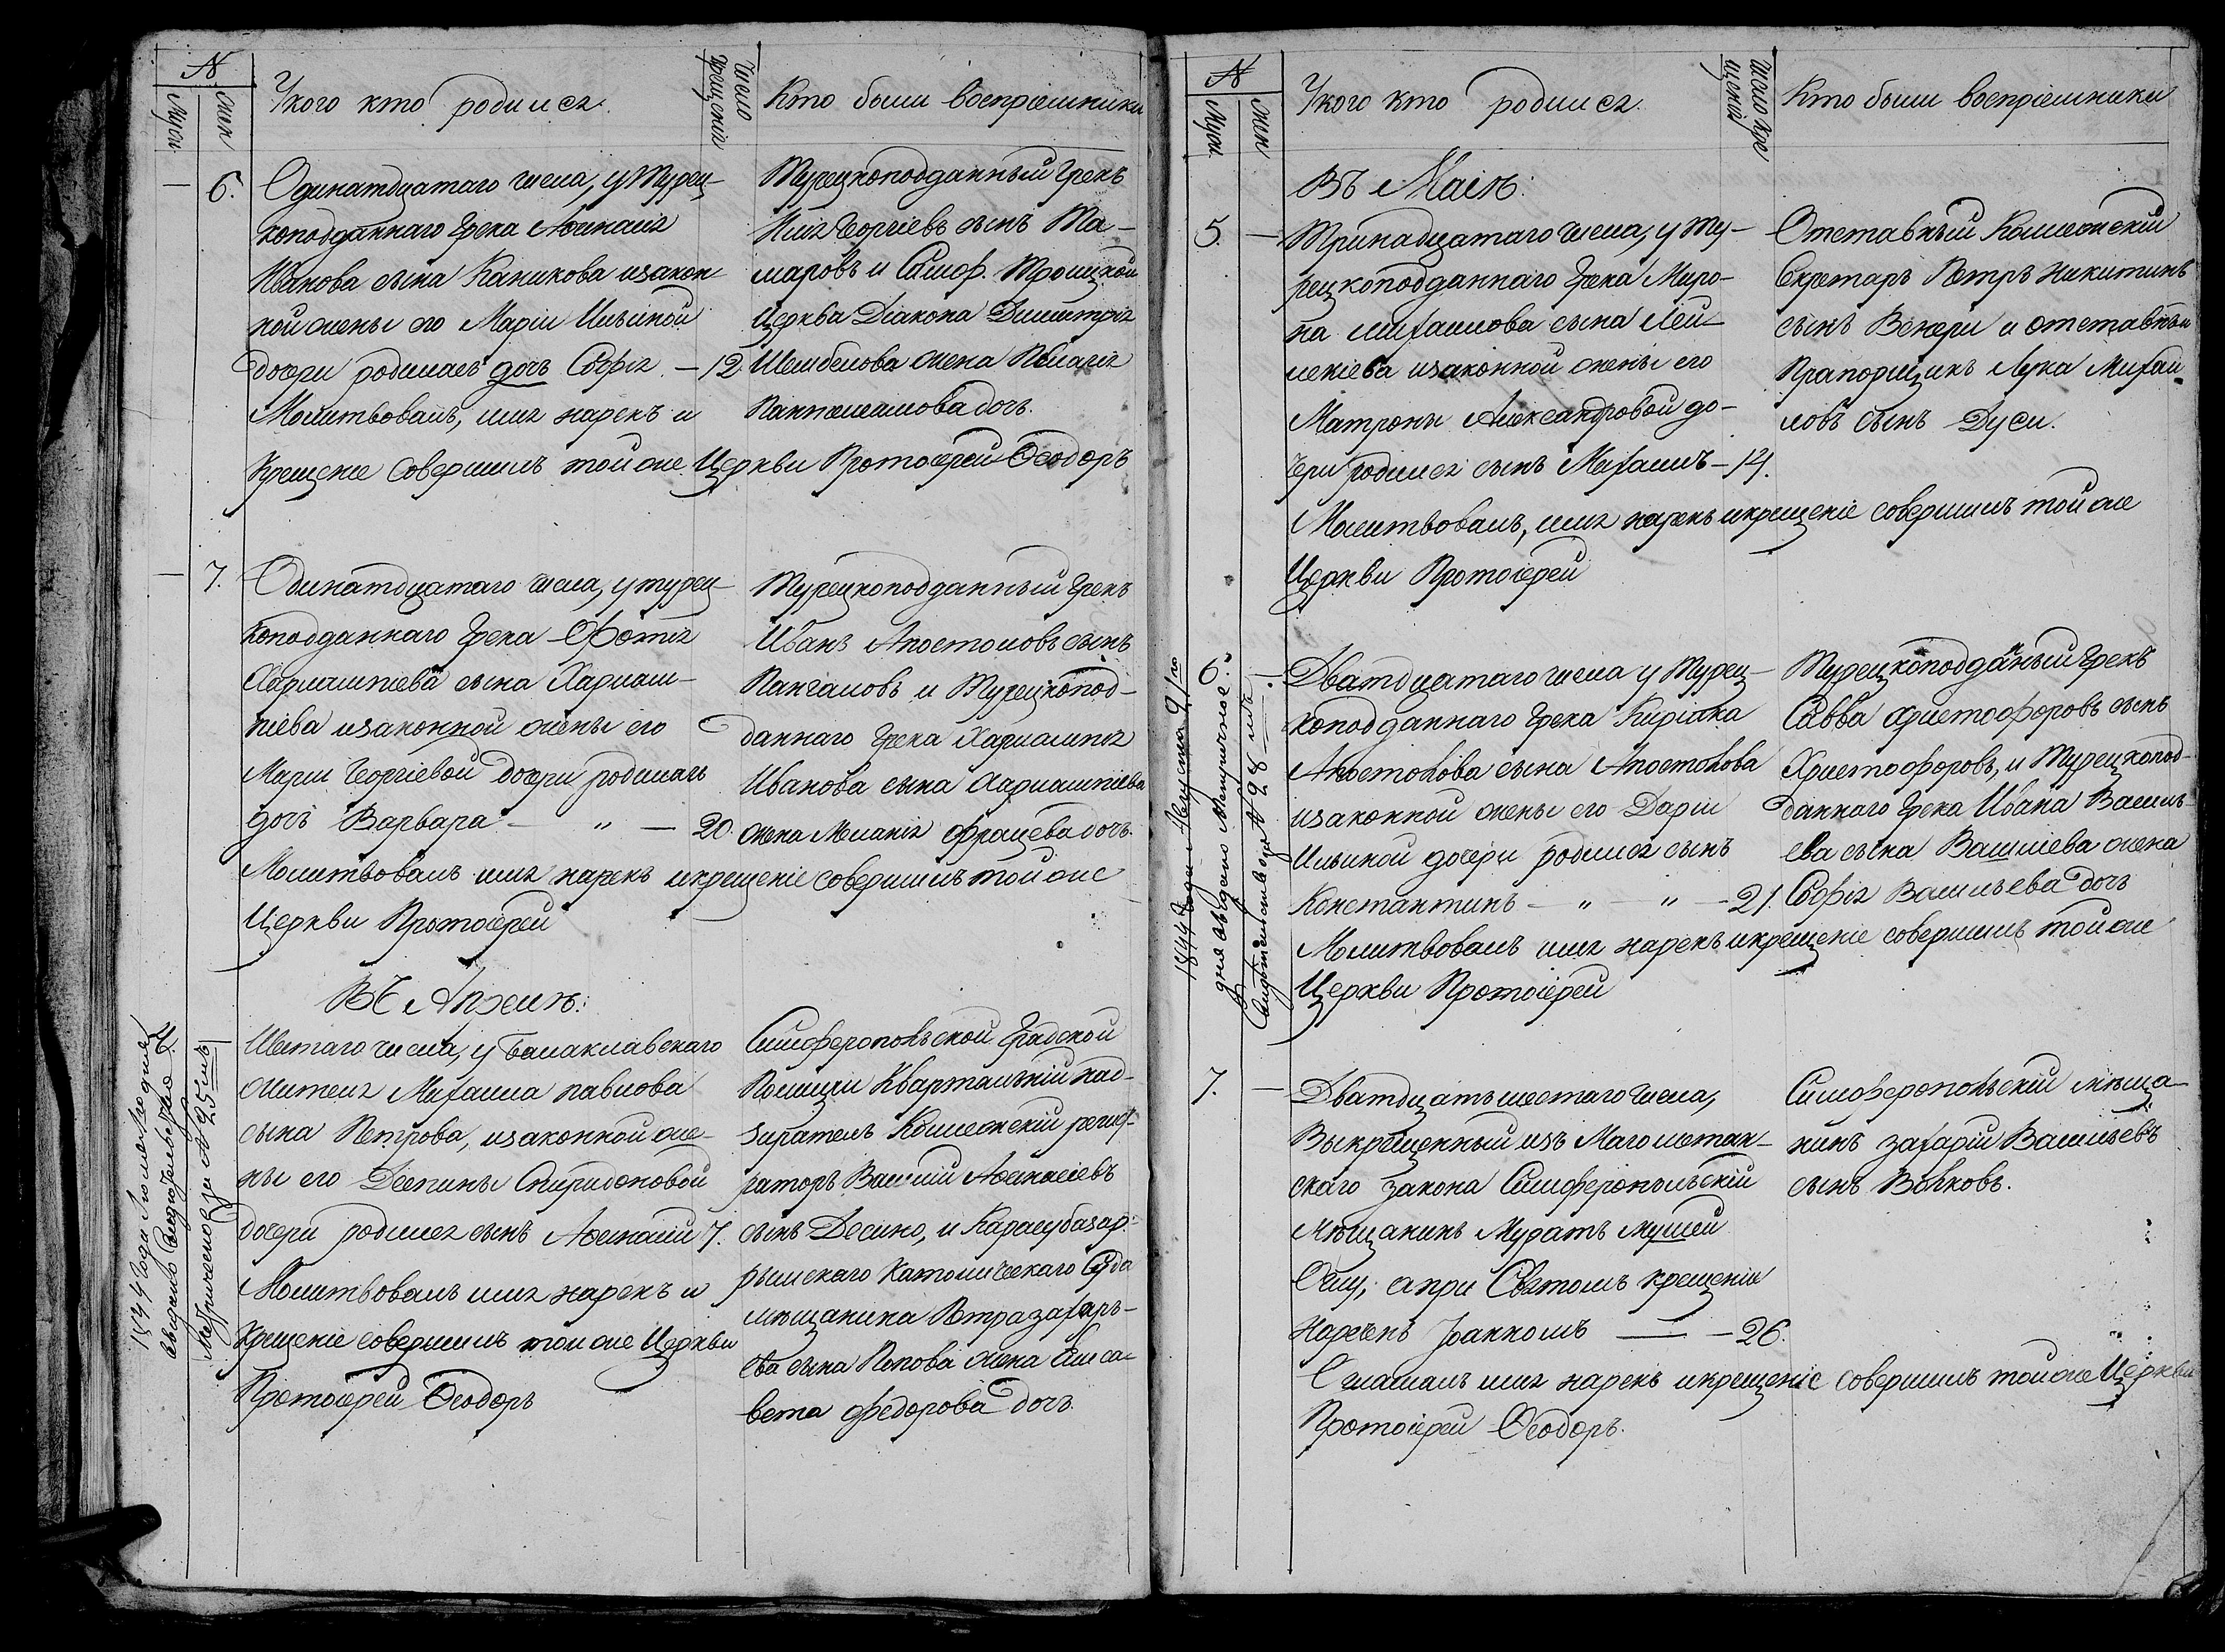 N
Муск
Жен
У кого кто родился.
Число
крещенія
Кто были воспріемники
—
6.
Одинатдцатаго числа, у Турец-
коподданнаго Грека Аѳанасія
Иванова сына Каникова изакон
ной жены его Маріи Ильиной
дочери родилась дочь Софія — 12.
Молитвовалъ, имя нарекъ и
Крещеніе совершилъ той же Церкви Протоіерей Ѳеодоръ
Турецкоподданный Грекъ
Илія Георгіевъ сынъ Та-
маровъ и Симф. Троицкой
Церква Діакона Димитрія
Шембелова жена Пелагія
Пантелеимова дочь.
—
7.
Одинатдцатаго числа, у турец-
коподданнаго Грека Фотія
Харлампіева сына Харлам-
піева изаконной жены его
Маріи Георгіевой дочери родилась
дочь Варвара — „ — 20.
Молитвовалъ имя нарекъ икрещеніе совершилъ той же
Церкви Протоіерей
Турецкоподданный Грекъ
Иванъ Апостоловъ сынъ
Пангаловъ и Турецкопод-
даннаго Грека Харлампія
Иванова сына Харлампіева
жена Меланія Фращева дочь.
Въ Апрелѣ:
Шестаго числа, у Балаклавскаго
жителя Михаила павлова
сына Петрова, изаконной же-
ны его Деспины Спиридоновой
дочери родился сынъ Аѳанасій 7.
Молитвовалъ имя нарекъ и
Крещеніе совершилъ той же Церкви
Протоіерей Ѳеодоръ
Симферопольской Градской
Полиціи Квартальній над-
зиратель Колежскій регист-
раторъ Василій Аѳанасіевъ
сынъ Десино, и Карасубазар-
рымскаго Католическаго Суда
мѣщанина Петра захарь-
ева сына Попова жена Елиса-
вета Федорова дочь.
1844 года
авыдано Свидѣтельство
Метрическое за № 25мъ
N
Муск.
Жен
У кого кто родился.
Число кре
щенія
Кто были воспріемники
Въ Маіѣ:
5.
—
Тринадцатаго числа, у Ту-
рецкоподданнаго Грека Миро-
на михаилова сына Лей-
мекіева изаконной жены его
Матроны Александровой до-
чери родился сынъ Михаилъ — 14.
Молитвовалъ, имя нарекъ икрещеніе совершилъ той же
Церкви Протоіерей
Отставный Колежскій
Секретарь Петръ Никитинъ
сынъ Венери и отставный
Прапорщикъ Лука Михаи-
ловъ сынъ Дуси.
6.
—
Дватдцатаго числа у Турец-
коподданнаго Грека Киріака
Апостолова сына Апостолова
изаконной жены его Даріи
Ильиной дочери родился сынъ
Константинъ — „ „ — 21.
Молитвовалъ имя нарекъ икрещеніе совершилъ той же
Церкви Протоіерей
Турецкоподданый Грекъ
Савва Христофоровъ сынъ
Христофоровъ, и Турецкопод-
даннаго Грека Ивана Василь-
ева сына Василіева жена
Софія Васильева дочь
1844 года Августа 91го
дня авыдано Метрическое
Свидѣтельство за № 28мъ.
7.
—
Дватдцать шестаго числа,
Выкрещенный изъ Магометан-
скаго закона Симферопольскій
Мѣщанинъ Муратъ Муслей
Оглу; апри Святомъ крещеніи
Нареченъ Іоанномъ — — 26.
Оглашалъ имя нарекъ икрещеніе совершилъ той же Церкви
Протоіерей Ѳеодоръ.
Симферопольскій мѣща-
нинъ захарій Васильевъ
сынъ Волковъ.